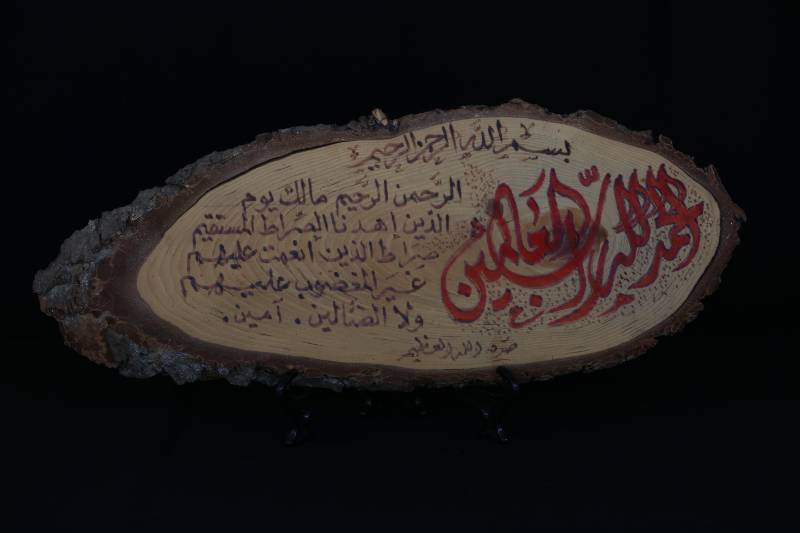 بسم الله الرحمن الرحيم
الحمد لله رب العالمين
الرحمن الرحيم مالك يوم
الدين اهدنا الصراط المستقيم
صراط الذين انعمت عليهم
غير المغضوب عليهم
ولا الضالين . آمين .
صدق الله العظيم